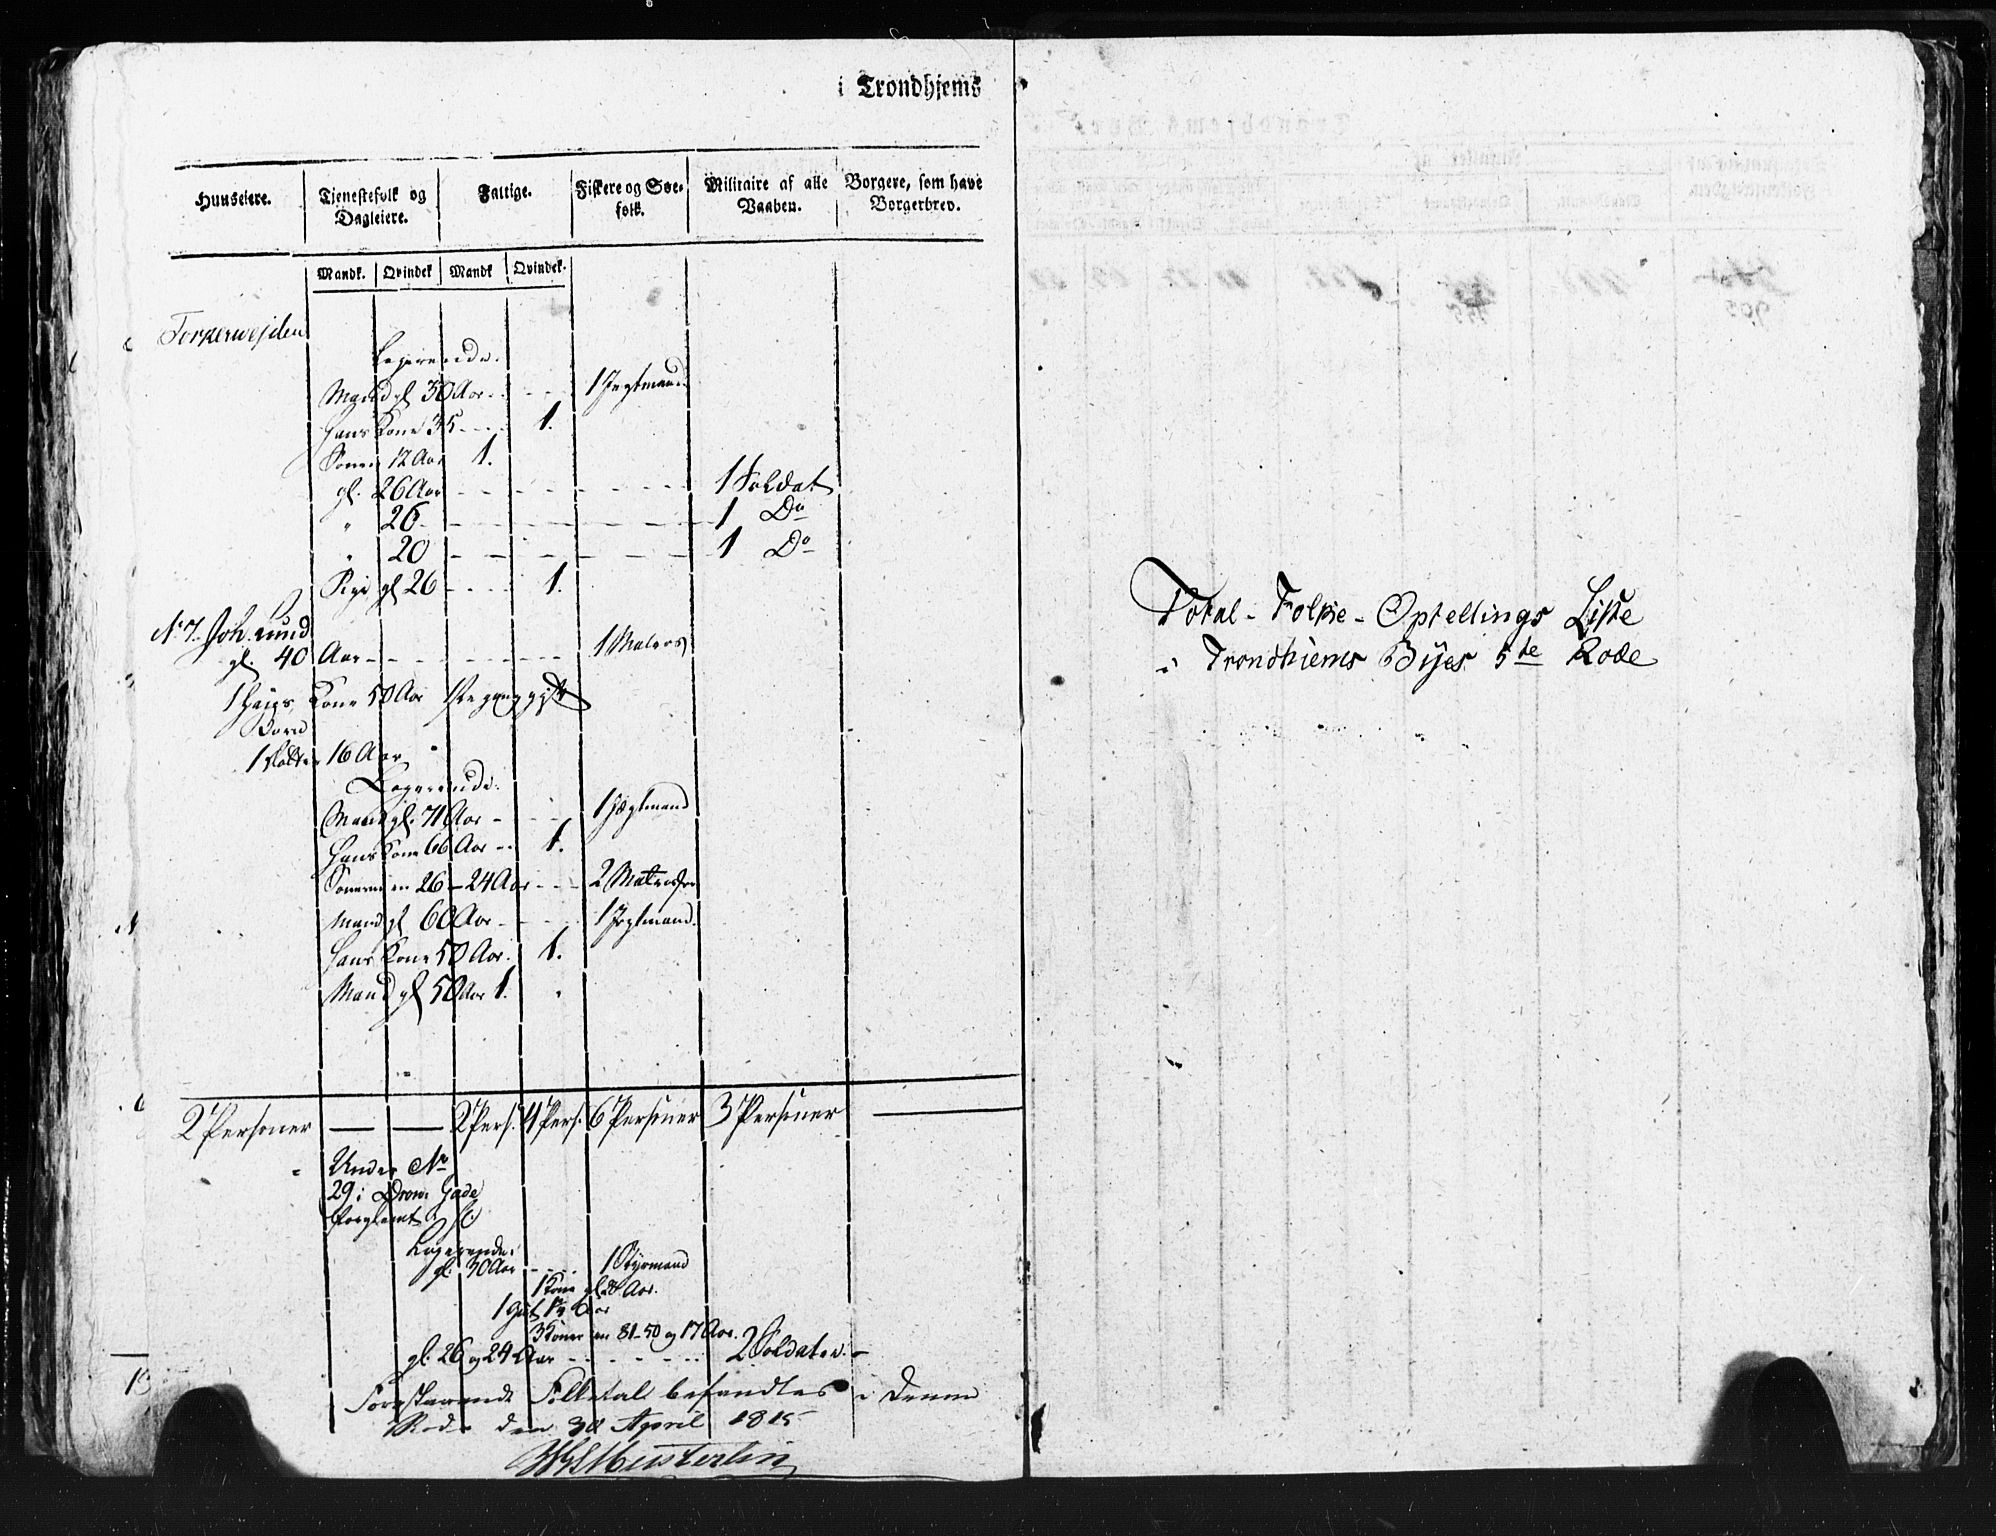 i Trondhjems
Huuseiere. Tjenestefolk og Dagleiere. Fattige. Fiskere og Søefolk. Militaire af alle Vaaben. Borgere, som have Borgerbrev.
Mandk. Qvindek Mandk Qvindek.
Logerende.
Mand gl 30 Aar - - - - 1 Jegtmand
Hans Kone 35 - - - 1.
Sønen 12 Aar 1.
gl. 26 Aar - - - - - - - - 1 Soldat
" 26 - - - - - - - - 1 Do
" 20 - - - - - - - - 1 Do
gl 26 - - - - 1.
No 7. Joh. Lund
gl. 40 Aar - - - - - - - 1 Matros
1 Hans Kone 50 Aar
Børn
1 Datter 16 Aar "
Logerende.
Mand gl. 71 Aar - - - - 1 Jægtmand
Hans Kone 66 Aar - - 1.
Sønerne en 26 - 24 Aar - - - 2 Matroser
Mand gl 60 Aar - - - - 1 Jegtmand.
Hans Kone 50 Aar. 1.
Mand gl 50 Aar 1. "
2 Personer — — 2 Pers. 4 Pers. 6 Personer 3 Personer —
Under No
29 i Dron. Gade
forglemt
Logerende.
gl. 30 Aar - - - - 1 Styrmand
1 Kone gl 28 Aar.
1 Gut Aar
3 Koner en 81 - 50 og 17 Aar.
gl. 26 og 24 Aar - - - - - - 2 Soldater. -
Forestaaende Folketal befandtes i denne
Rode den 30 April 1815
13
Total - Folke - Optellings Liste
i Trondhiems Byes 5te Rode